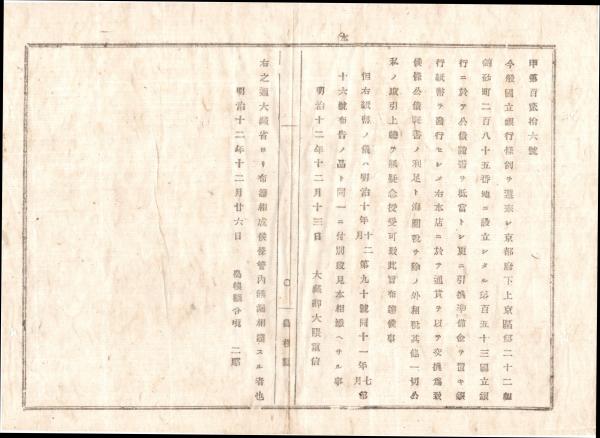 甲第百貳拾六號
今般國立銀行條例ヲ遵奉シ京都府下上京區第二十二組
町二百八十五番地ニ設立シタル第百五十三國立銀
行ニ於テ公債證書ヲ抵當トシ更ニ引換準備金ヲ置キ銀
行紙幣ヲ發行セシメ右本店ニ於テ通貨ヲ以テ交換爲致
候條公債證書ノ利足ト海關稅ヲ除ノ外租稅其他一切公
私ノ取引上總テ無疑念授受可致此旨布達候事
但右紙幣ノ儀ハ明治十年十二月第九十號同十一年七月第
十六號布告ノ品ト同一ニ付別段見本相添ヘサル事
明治十二年十二月十三日 大藏卿大隈重信
右之通大藏省ヨリ布達相成候條管内無漏相達スル者也
明治十二年十二月廿六日 島根縣令境 二郎
島根縣